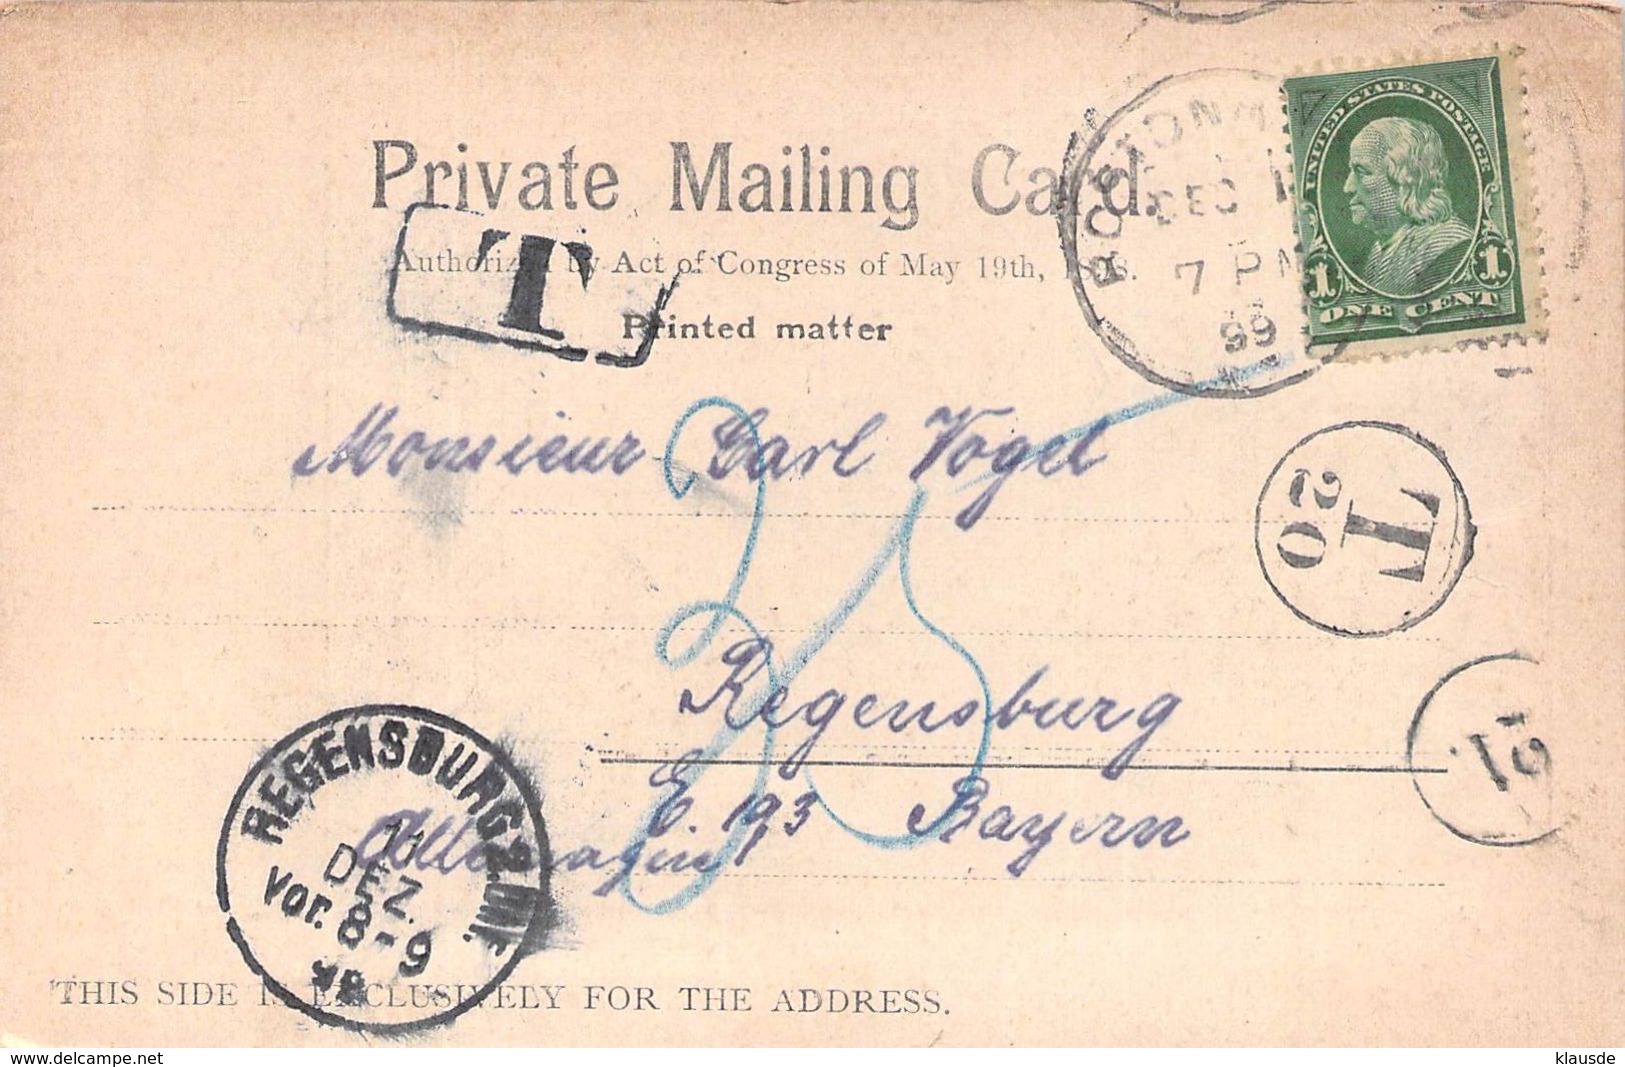 Private Mailing Card.
Authorized by Act of Congress of May 19th, 1898.
Printed matter
T
BOSTON
DEC 1
7 PM
99
UNITED STATES POSTAGE
1 1
ONE CENT
Monsieur Carl Vogel
T
20
35
Regensburg
E. 193 Bayern
Allemagne
21.
REGENSBURG 2
11
DEZ.
Vor. 8-9
THIS SIDE IS EXCLUSIVELY FOR THE ADDRESS.
www.delcampe.net
klausde